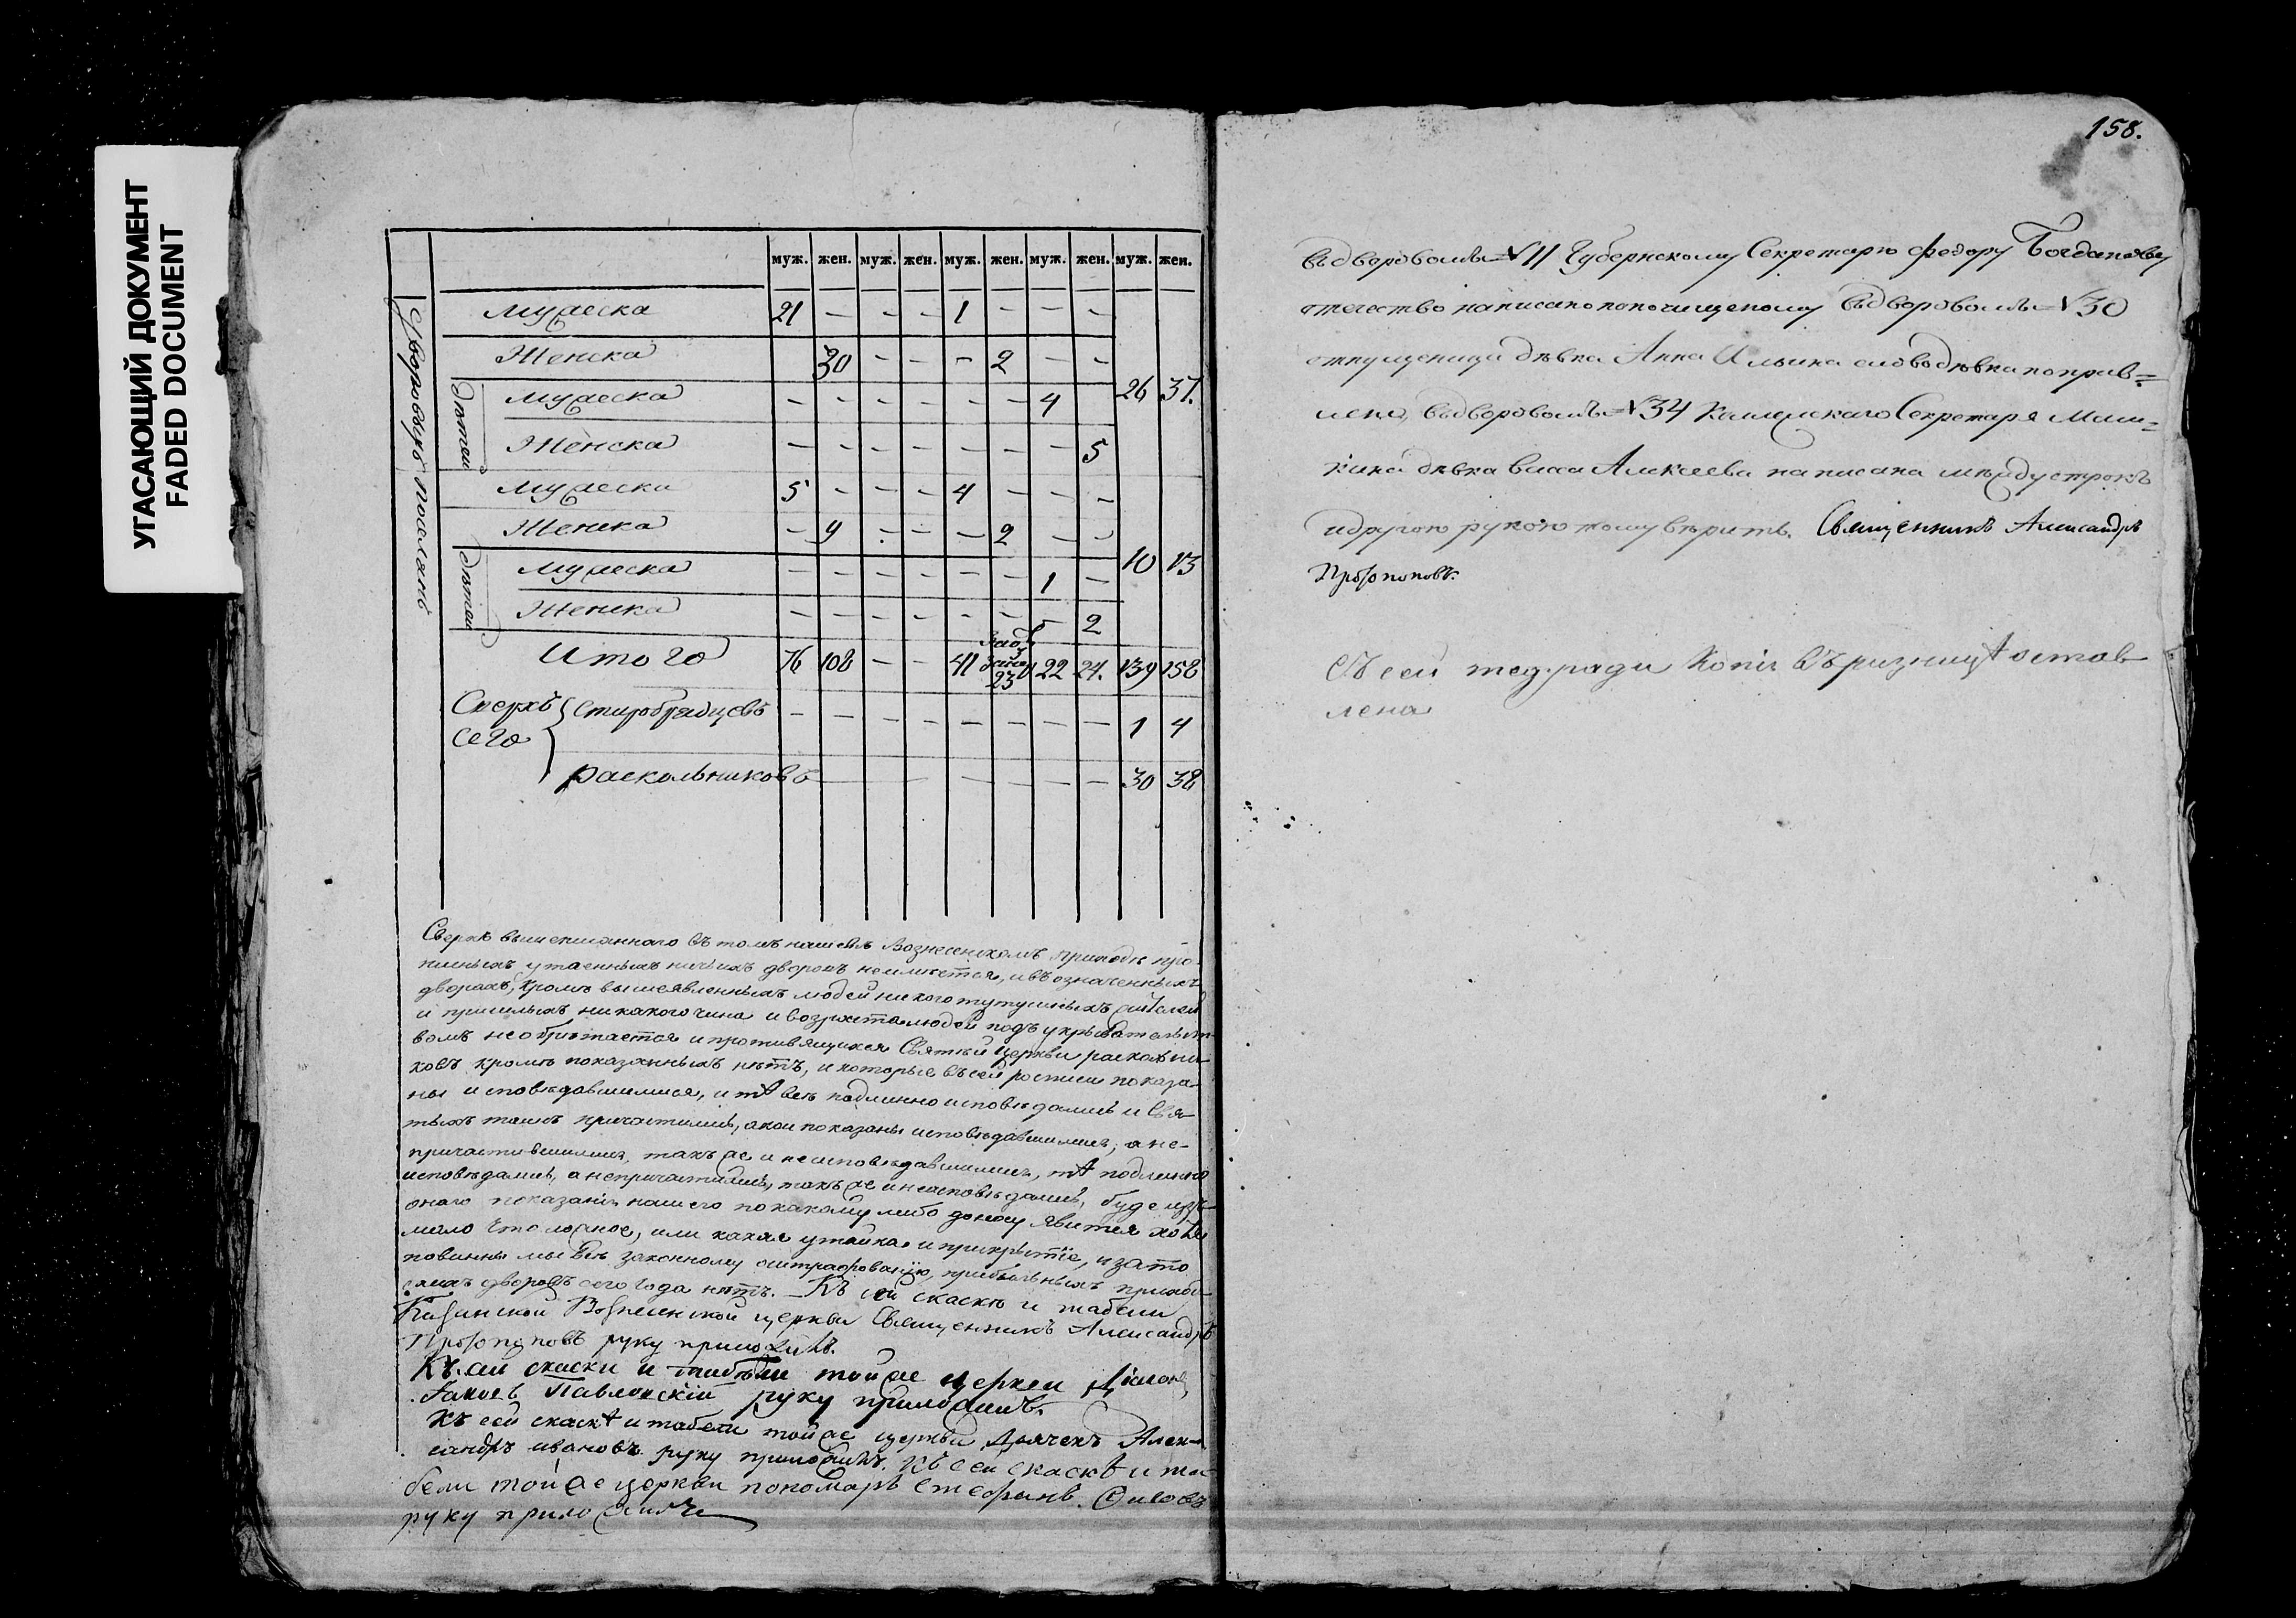 УГАСАЮЩИЙ ДОКУМЕНТ
FADED DOCUMENT
муж. жен. муж. жен. муж. жен. муж. жен. муж. жен.
дворовыхъ
Мужеска 21 – – – 1 – – –
Женска 30 – – – 2 – – 26 37.
дѣтей
Мужеска – – – – – – 4
Женска – – – – – – – 5
поселянъ
Мужеска 5 – – – 4 – – –
Женска – 9 – – – 2 – – 10 13
дѣтей
Мужеска – – – – – – 1 –
Женска – – – – – – – 2
Итого 76 108 – – 41 23 22 24. 139 158
Сверхъ сего
Старобрядцевъ – – – – – – – – 1 4
раскольниковъ – – – – – 30 38
Сверхъ вышеписаннаго въ томъ нашемъ Вознесенскомъ приходѣ про-
писныхъ утаенныхъ ничьихъ дворовъ неимѣется, и въ означенныхъ
дворахъ, кромѣ вышеявленныхъ людей никого тутушныхъ жителей
и пришлыхъ никакого чина и возраста людей подъ укрывательст-
вомъ необрѣтается и противящихся Святѣй Церкви расколни-
ковъ кромѣ показанныхъ нѣтъ, и которые въ сей росписи показа-
ны исповѣдавшимися, и тѣ всѣ подлинно исповѣдались и Свя-
тыхъ таинъ причастились, а кои показаны исповѣдавшимись, а не-
причастившимись, такъ же и неисповѣдавшимись, тѣ подлинно
исповѣдались, а непричастились, такъ же и неисповѣдались, буде изъ
онаго показанія нашего по какому либо доносу явится хотя
мало что ложное, или какая утайка и прикрытіе, и за то
повинны мы всѣ законному оштрафованію, прибыльныхъ приход-
скихъ дворовъ сего года нѣтъ. – Къ сей скаскѣ и табели
Вознесенской церкви Священникъ Александръ
Протопоповъ руку приложилъ.
Къ сей скаски и табели той же церкви Діаконъ
Іаковъ Павловскій руку приложилъ.
Къ сей скаскѣ и табели той же церкви Дьячекъ Алек-
сандръ Ивановъ руку приложилъ. Къ сей скаскѣ и та-
бели той же церкви пономарь Стефанъ
руку приложилъ
158.
Въ дворовомъ № 11 Губернскому Секретарю Федору Богданову
отечество написано по почищеному Въ дворовомъ № 30
отпущеница дѣвка Анна Ильина слово дѣвка поправ=
лено, Въ дворовомъ № 34 Коллежскаго Секретаря Маш=
кина дѣвка Васса Алексеева написана между строкъ
и другою рукою тому вѣрить. Священникъ Александръ
Протопоповъ.
Съ сей тедради Копія въ ризницѣ остав-
лена